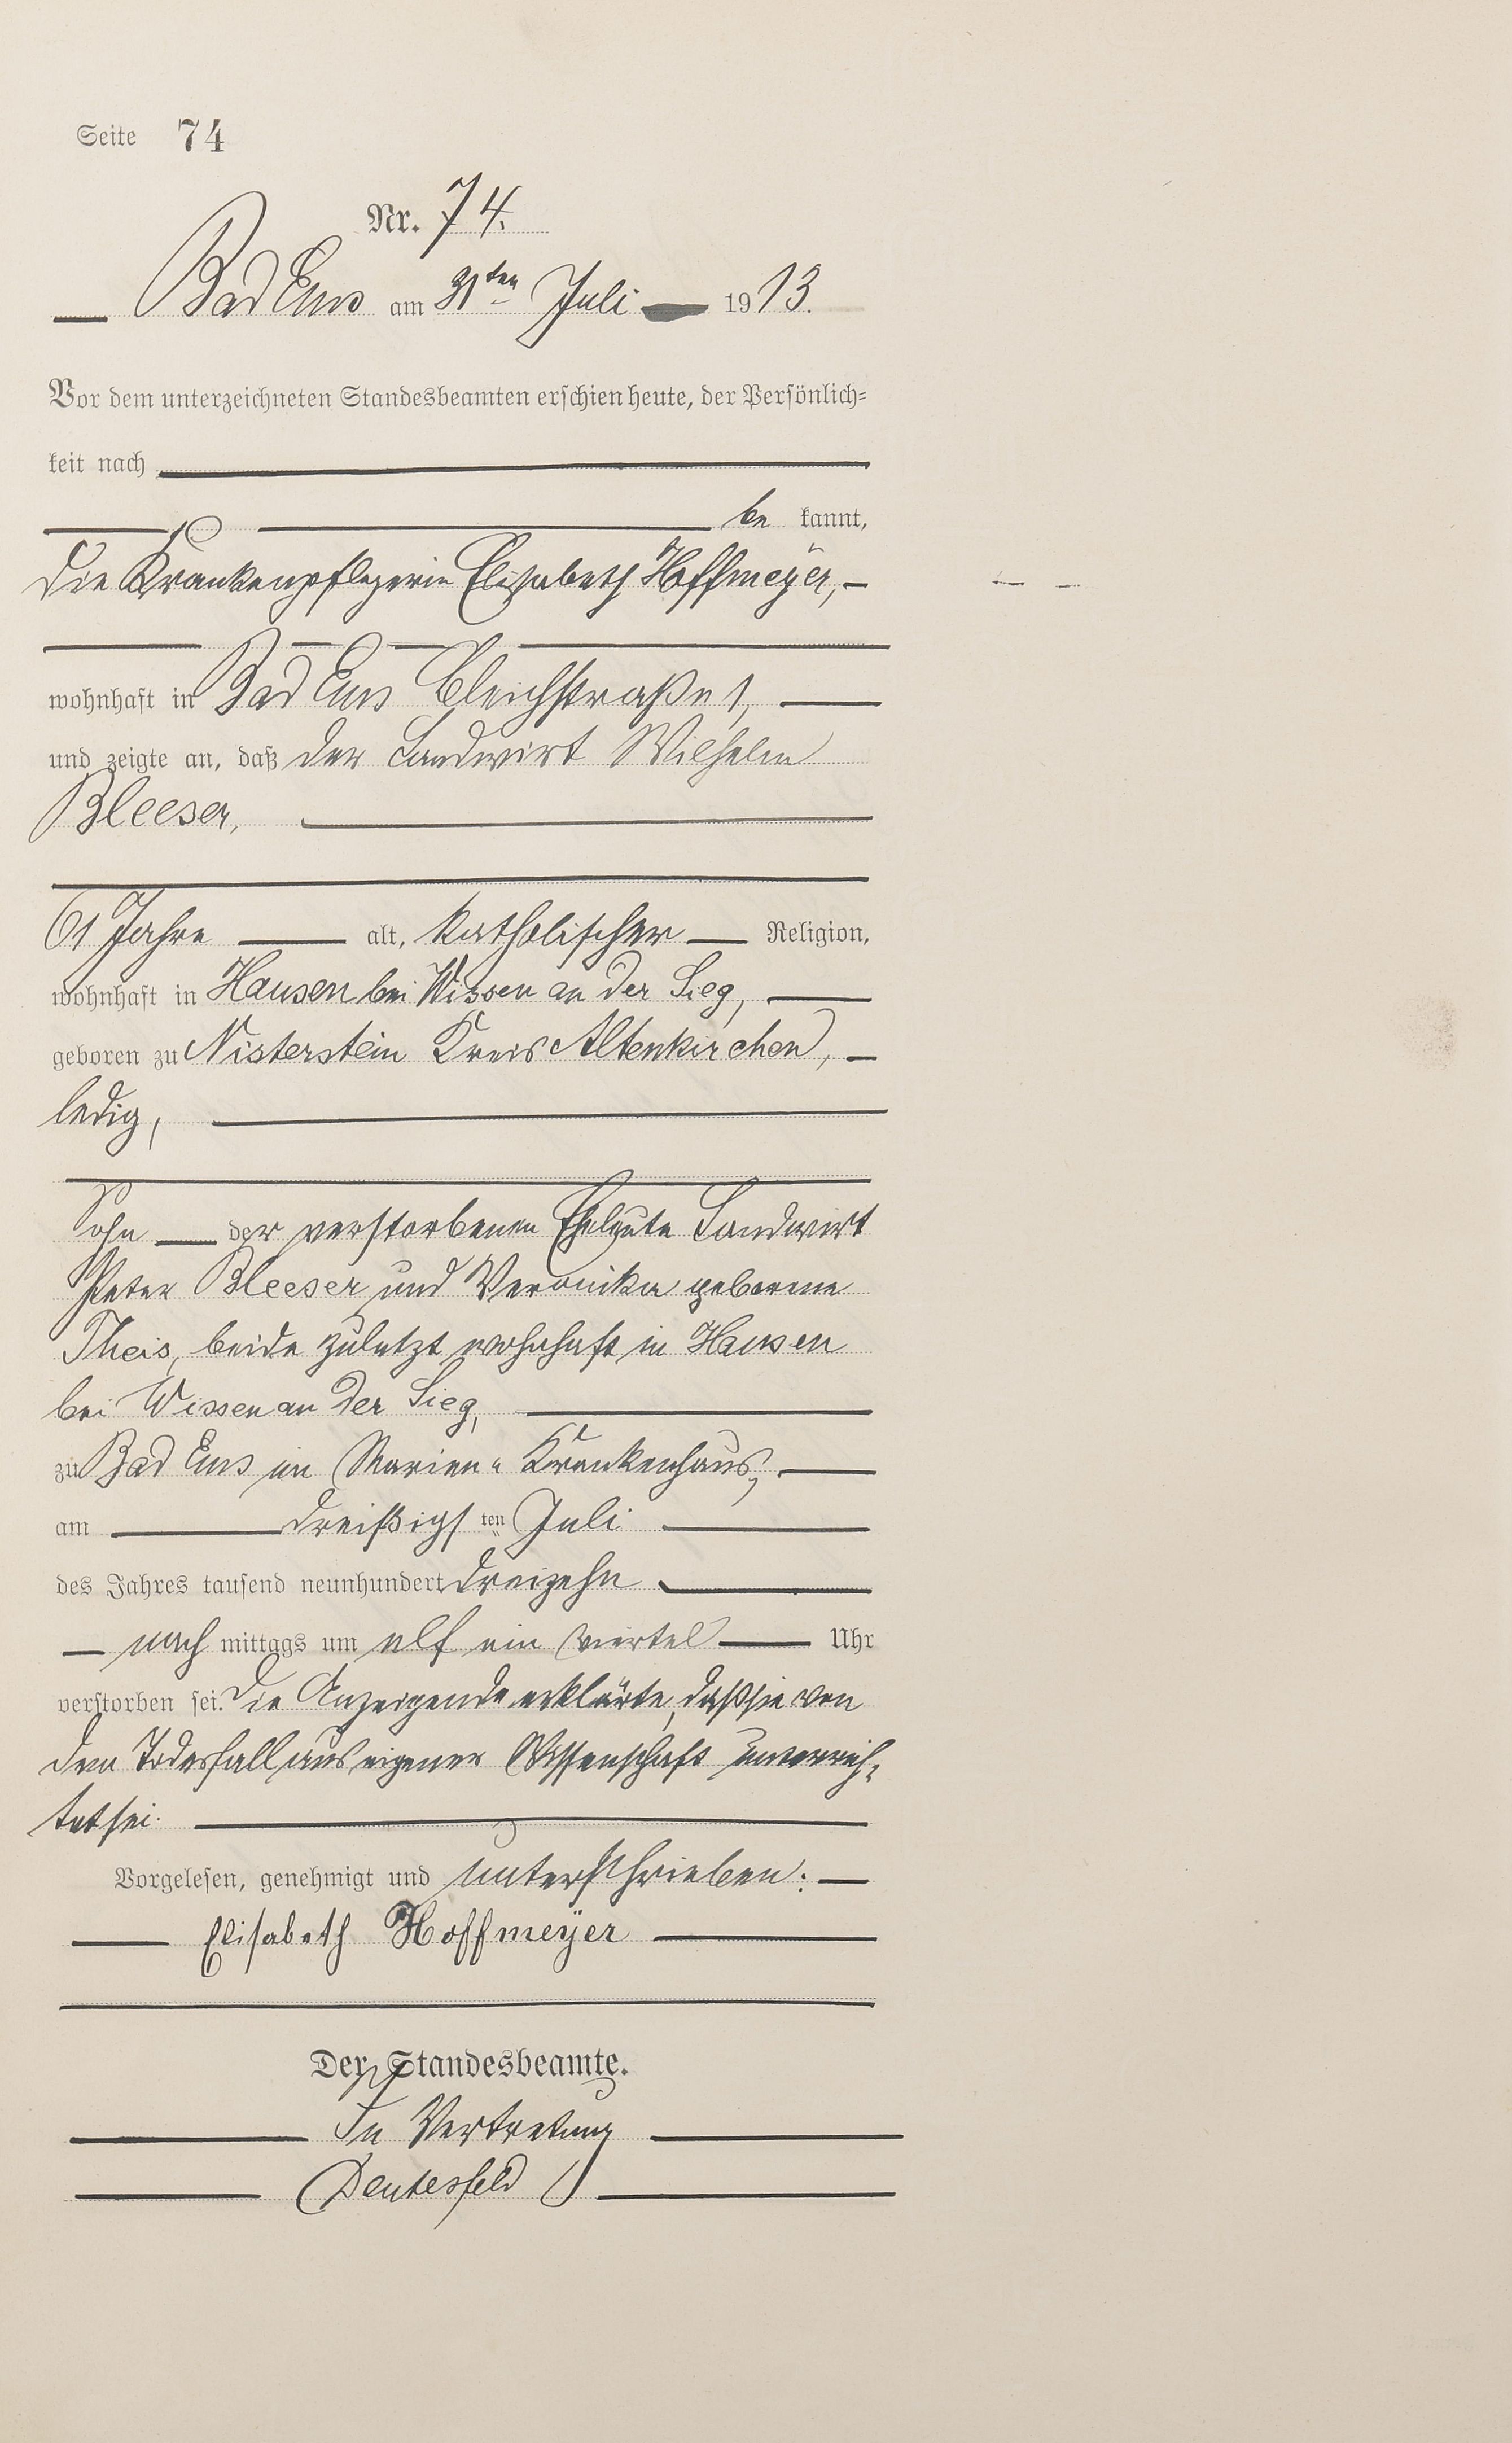 Seite 74
Nr. 74.
Bad Ems am 31ten Juli 1913.
Vor dem unterzeichneten Standesbeamten erschien heute, der Persönlich=
keit nach
be kannt,
die Krankenpflegerin Elisabeth Hoffmeÿer,
wohnhaft in Bad Ems Bleichstraße 1,
und zeigte an, daß der Landwirt Wilhelm
Bleeser,
61 Jahre alt, katholischer Religion,
wohnhaft in Hausen bei Wissen an der Sieg,
geboren zu Nisterstein Kreis Altenkirchen,
ledig,
Sohn der verstorbenen Eheleute Landwirt
Peter Bleeser und Veronika geborene
Theis, beide zuletzt wohnhaft in Hausen
bei Wissen an der Sieg,
zu Bad Ems im Marien-Krankenhaus,
am dreißigsten Juli
des Jahres tausend neunhundert dreizehn
nach mittags um elf ein viertel Uhr
verstorben sei. Die Anzeigende erklärte, daß sie von
dem Todesfall aus eigener Wissenschaft unterrich=
tet sei.
Vorgelesen, genehmigt und unterschrieben:
Elisabeth Hoffmeÿer
Der Standesbeamte.
In Vertretung
Deutesfeld